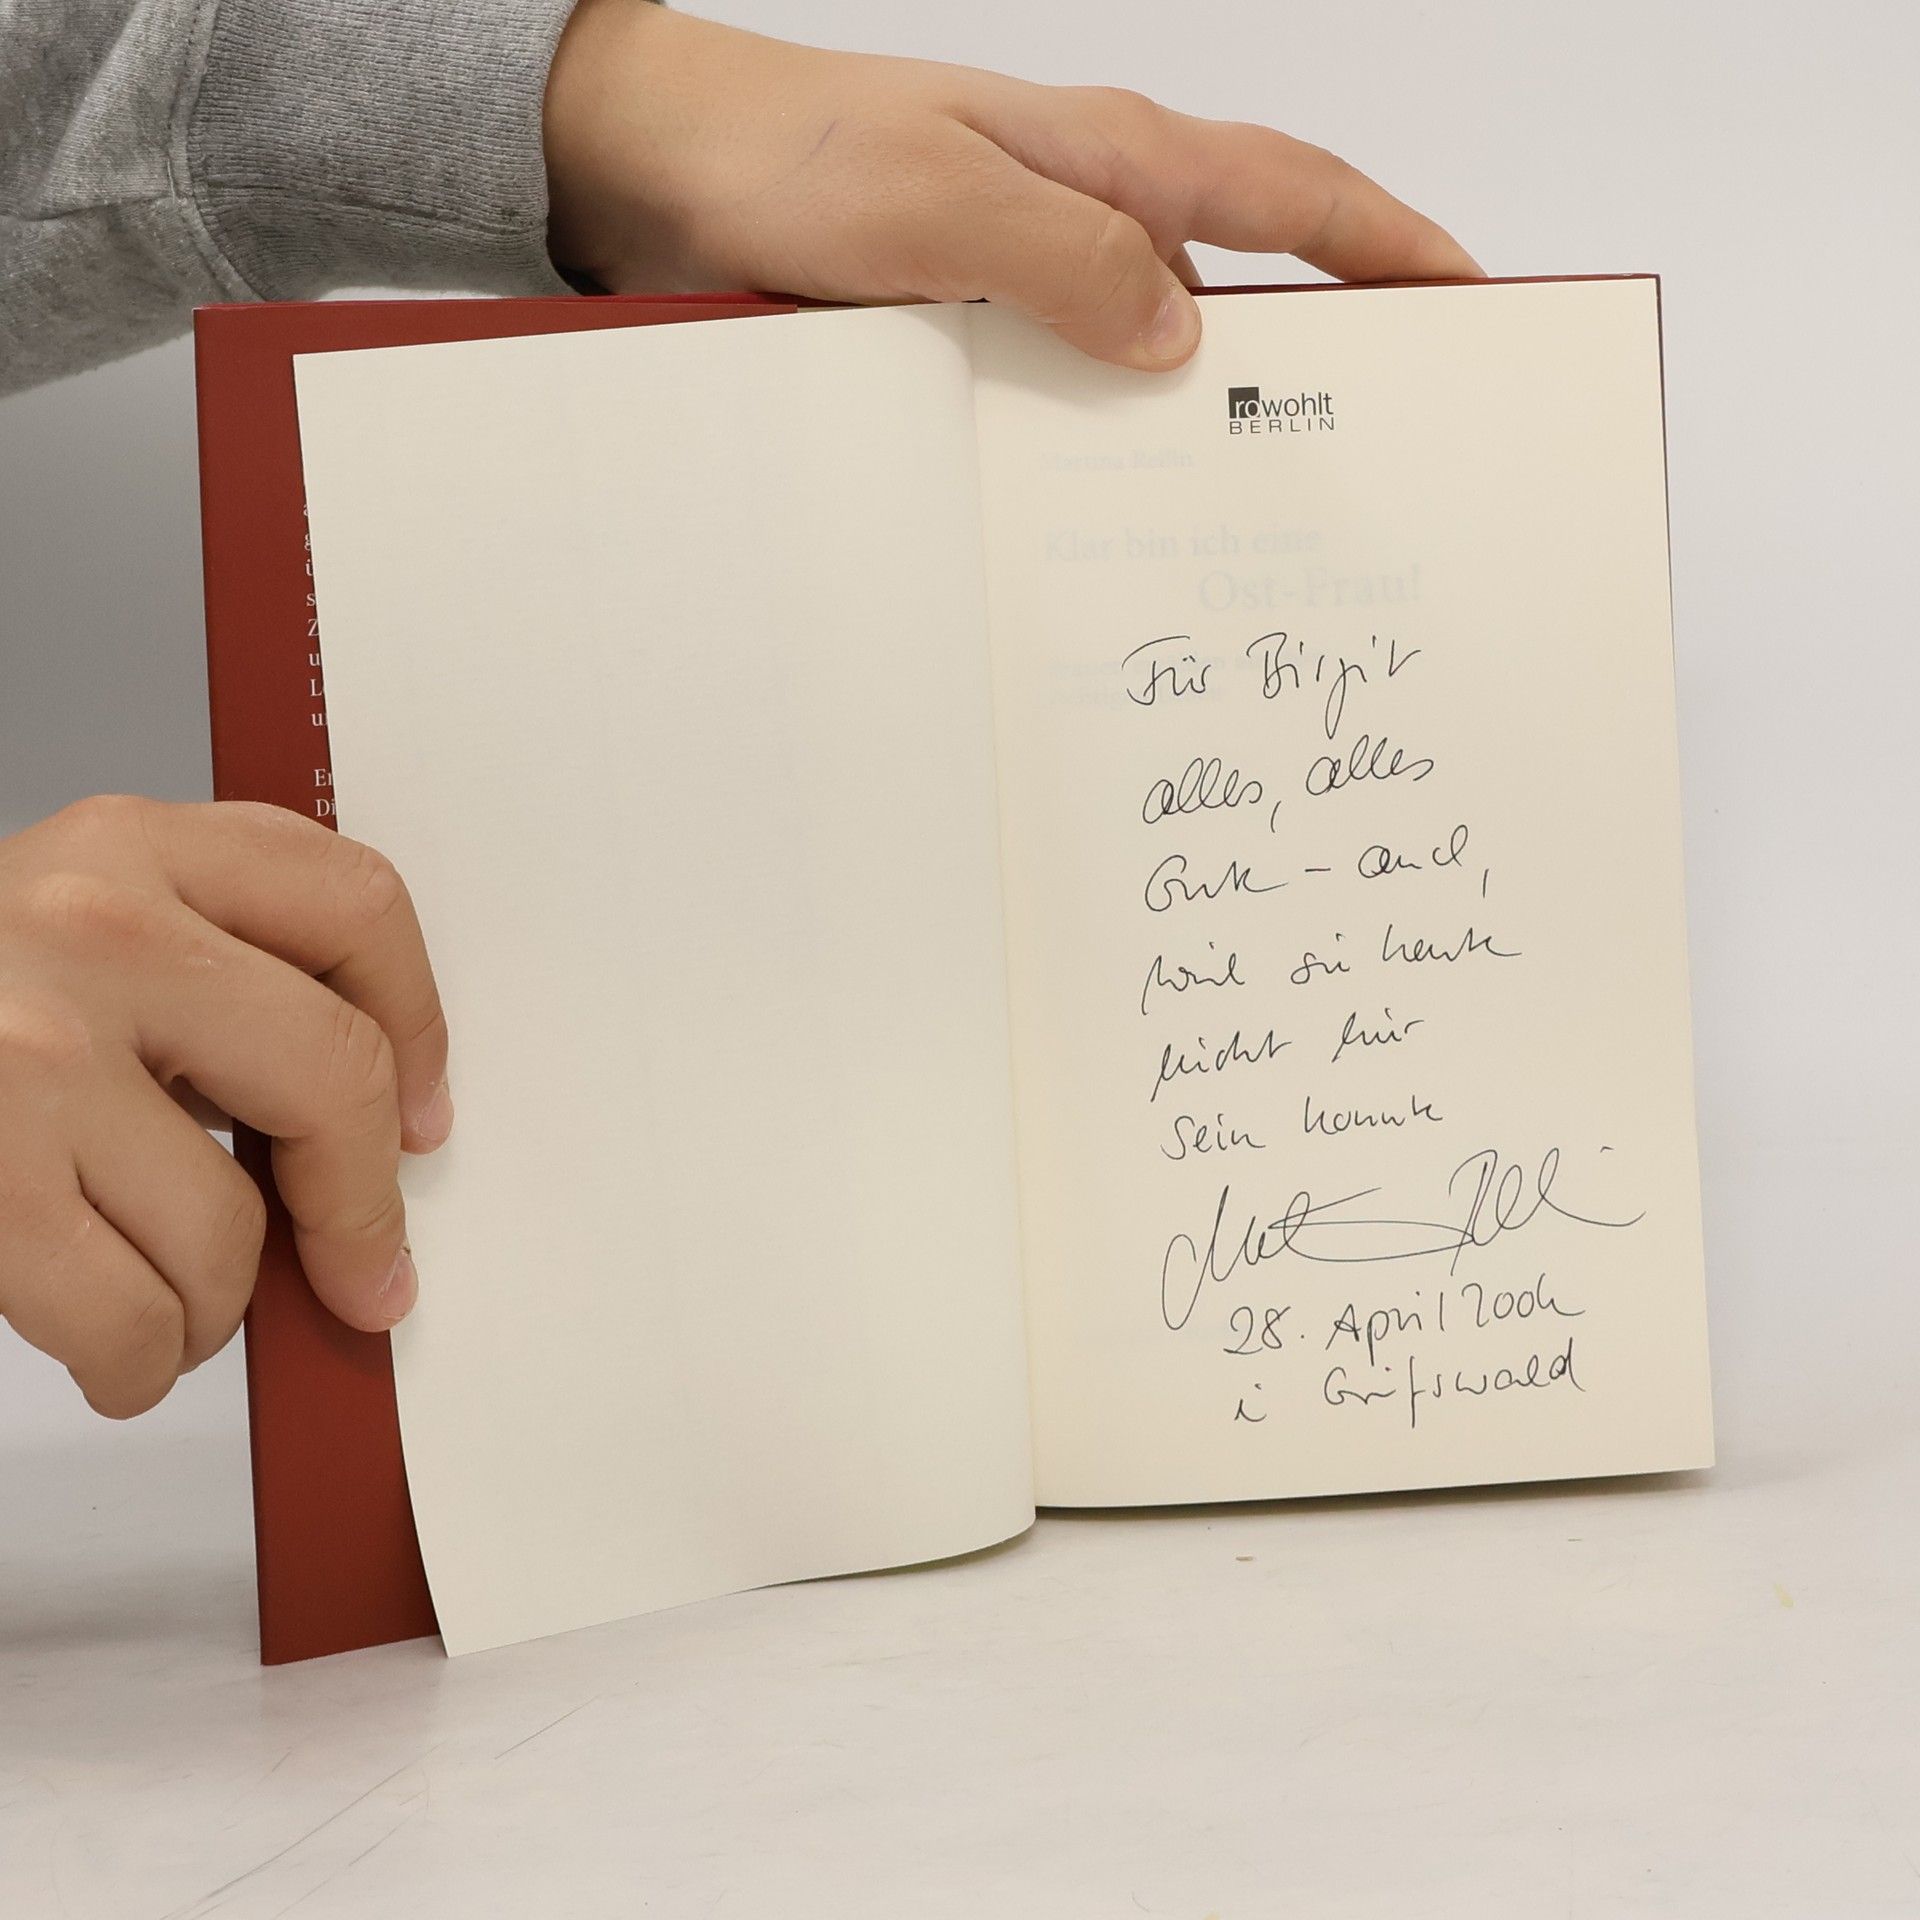 rowohlt
BERLIN
Martina Rellin
Klar bin ich eine
Ost-Frau!
Für Birgit
alles, alles
Gute - auch,
weil sie heute
nicht hier
sein konnte
Martina Rellin
28. April 2004
i Greifswald
ü
s
Z
u
L
u
Er
Di